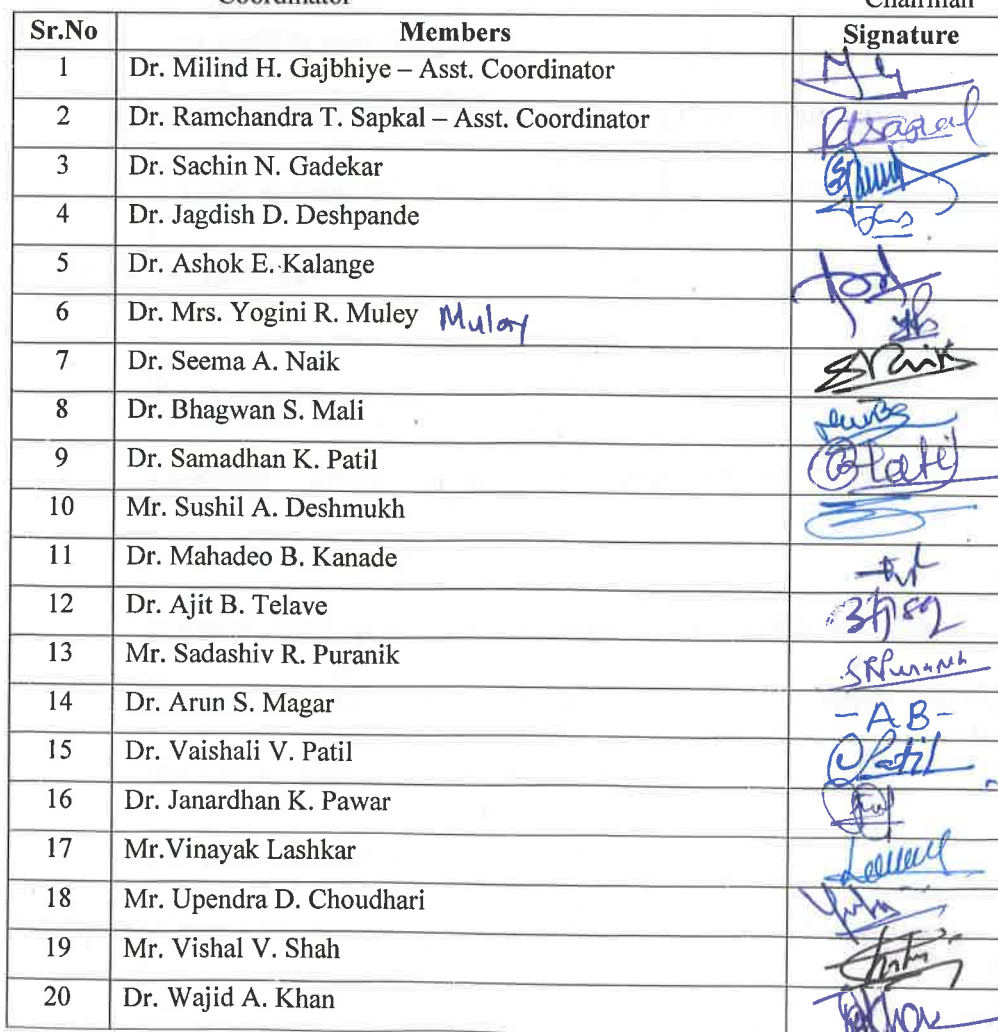 Coordinator Chairman
Sr.No Members Signature
1 Dr. Milind H. Gajbhiye – Asst. Coordinator
2 Dr. Ramchandra T. Sapkal – Asst. Coordinator
3 Dr. Sachin N. Gadekar
4 Dr. Jagdish D. Deshpande
5 Dr. Ashok E. Kalange
6 Dr. Mrs. Yogini R. Muley Mulay
7 Dr. Seema A. Naik
8 Dr. Bhagwan S. Mali
9 Dr. Samadhan K. Patil
10 Mr. Sushil A. Deshmukh
11 Dr. Mahadeo B. Kanade
12 Dr. Ajit B. Telave
13 Mr. Sadashiv R. Puranik
14 Dr. Arun S. Magar -AB-
15 Dr. Vaishali V. Patil
16 Dr. Janardhan K. Pawar
17 Mr.Vinayak Lashkar
18 Mr. Upendra D. Choudhari
19 Mr. Vishal V. Shah
20 Dr. Wajid A. Khan